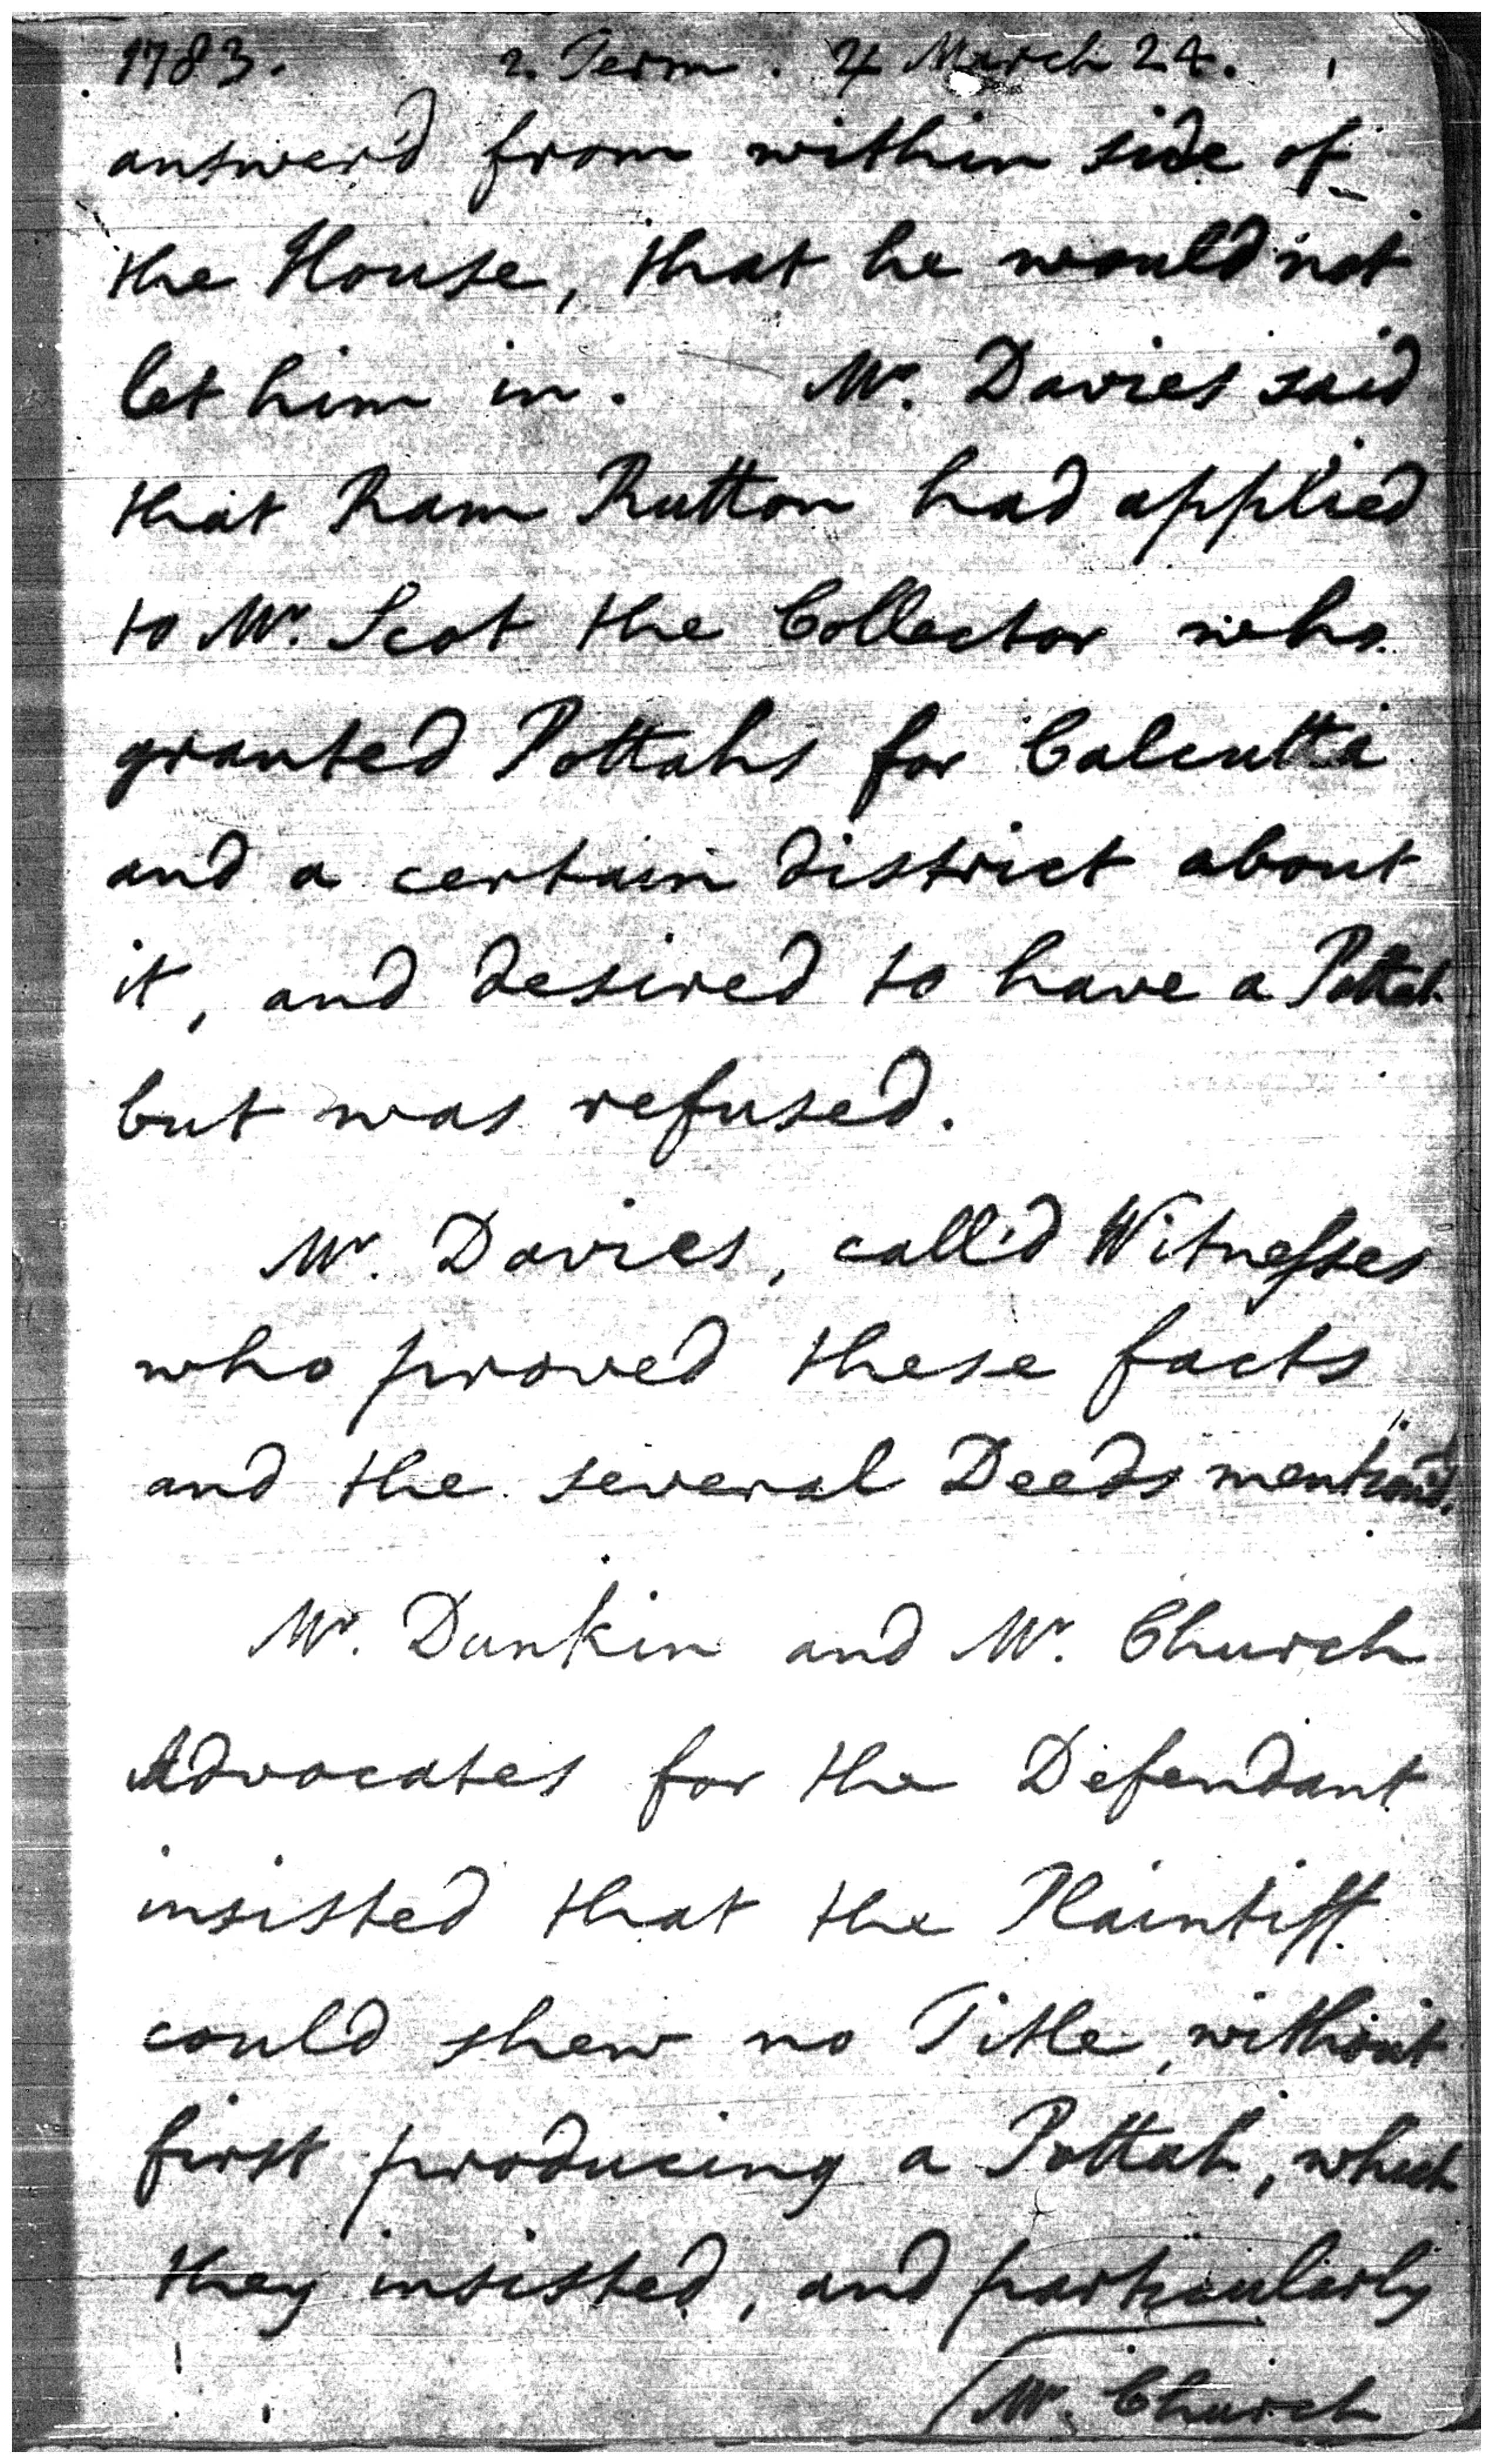 1783. 2. Term. 4 March 24.
answer'd from within side of
the House, that he would not
let him in. Mr. Davies said
that Ram Rutton had applied
to Mr. Scot the Collector who
granted Pottahs for Calcutta
and a certain district about
it, and desired to have a Pottah
but was refused.
Mr. Davies, call'd Witnesses
who proved these facts
and the several Deeds mention'd.
Mr. Dunkin and Mr. Church
Advocates for the Defendant
insisted that the Plaintiff
could shew no Title, without
first producing a Pottah, which
they insisted, and particularly
Mr. Church